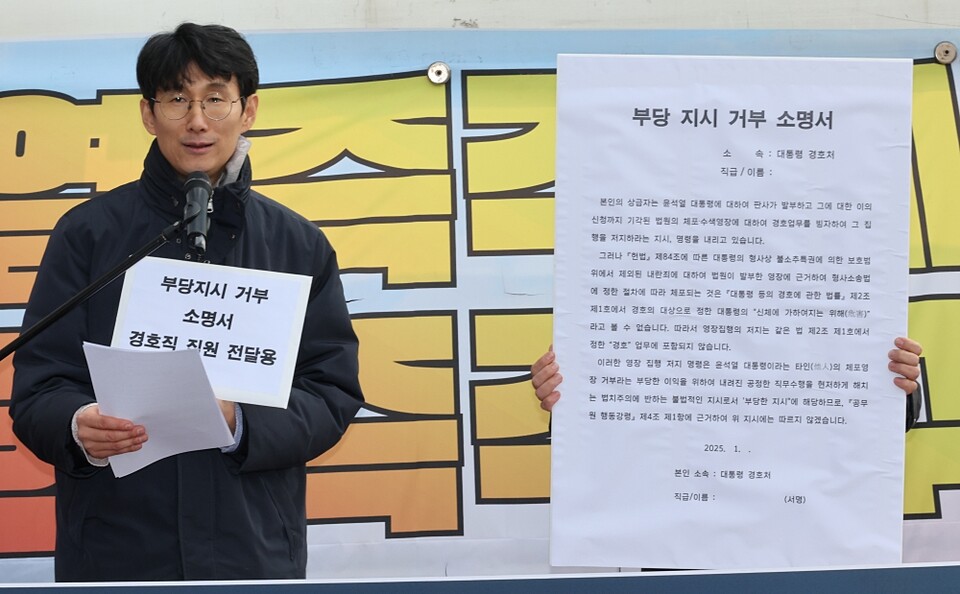 부당지시 거부
소명서
경호직 직원 전달용
부당 지시 거부 소명서
소 속 : 대통령 경호처
직급 / 이름 :
본인의 상급자는 윤석열 대통령에 대하여 판사가 발부하고 그에 대한 이의
신청까지 기각된 법원의 체포·수색영장에 대하여 경호업무를 빙자하여 그 집
행을 저지하라는 지시, 명령을 내리고 있습니다.
그러나 『헌법』 제84조에 따른 대통령의 형사상 불소추특권에 의한 보호범
위에서 제외된 내란죄에 대하여 법원이 발부한 영장에 근거하여 형사소송법
에 정한 절차에 따라 체포되는 것은 『대통령 등의 경호에 관한 법률』 제2조
제1호에서 경호의 대상으로 정한 대통령의 “신체에 가하여지는 위해(危害)”
라고 볼 수 없습니다. 따라서 영장집행의 저지는 같은 법 제2조 제1호에서
정한 “경호” 업무에 포함되지 않습니다.
이러한 영장 집행 저지 명령은 윤석열 대통령이라는 타인(他人)의 체포영
장 거부라는 부당한 이익을 위하여 내려진 공정한 직무수행을 현저하게 해치
는 법치주의에 반하는 불법적인 지시로서 '부당한 지시"에 해당하므로, 『공무
원 행동강령』 제4조 제1항에 근거하여 위 지시에는 따르지 않겠습니다.
2025. 1. .
본인 소속 : 대통령 경호처
직급/이름 : (서명)